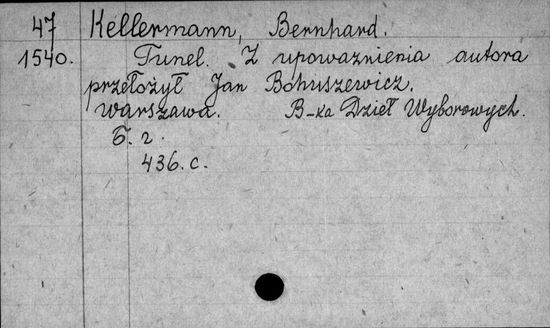 47 Kellermann, Bernhard.
1540. Tunel. Z upoważnienia autora
przełożył Jan Bohuszewicz.
Warszawa. B-ka Dzieł Wyborowych.
Б. г.
436. с.